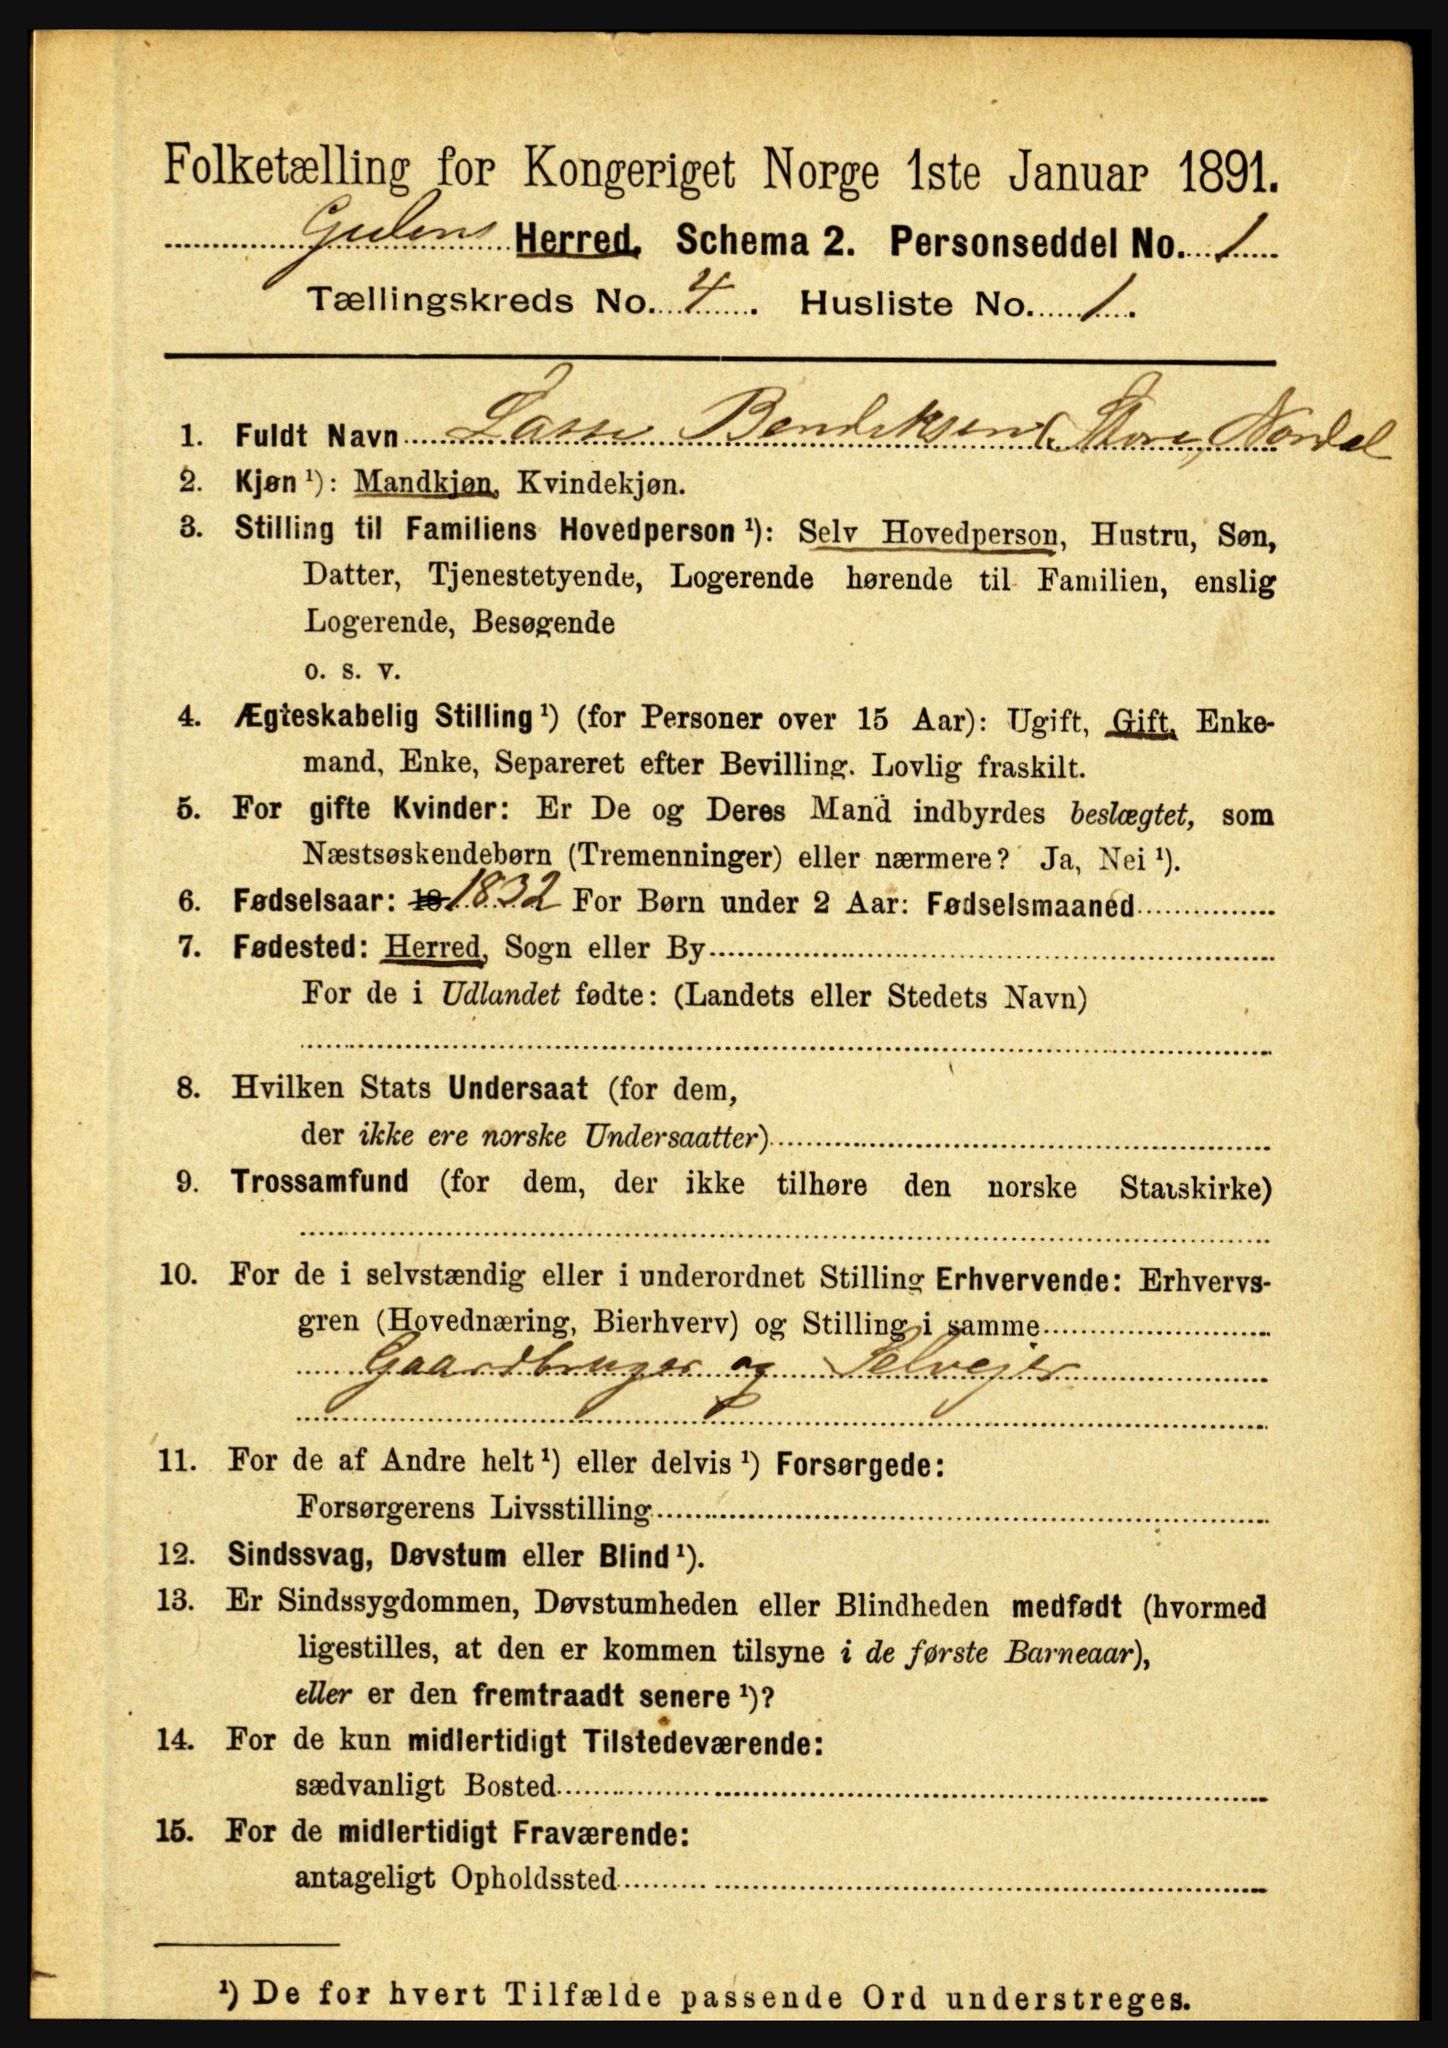 Folketælling for Kongeriget Norge 1ste Januar 1891.
Gulens Herred. Schema 2. Personseddel No. 1
Tællingskreds No. 4. Husliste No. 1.
1. Fuldt Navn Lasse Bendiksen Store Nordal
2. Kjøn ¹): Mandkjøn, Kvindekjøn.
3. Stilling til Familiens Hovedperson ¹): Selv Hovedperson, Hustru, Søn,
Datter, Tjenestetyende, Logerende hørende til Familien, enslig
Logerende, Besøgende
o. s. v.
4. Ægteskabelig Stilling ¹) (for Personer over 15 Aar): Ugift, Gift, Enke-
mand, Enke, Separeret efter Bevilling. Lovlig fraskilt.
5. For gifte Kvinder: Er De og Deres Mand indbyrdes beslægtet, som
Næstsøskendebørn (Tremenninger) eller nærmere? Ja, Nei ¹).
6. Fødselsaar: 18 1832 For Børn under 2 Aar: Fødselsmaaned
7. Fødested: Herred, Sogn eller By
For de i Udlandet fødte: (Landets eller Stedets Navn)
8. Hvilken Stats Undersaat (for dem,
der ikke ere norske Undersaatter)
9. Trossamfund (for dem, der ikke tilhøre den norske Statskirke)
10. For de i selvstændig eller i underordnet Stilling Erhvervende: Erhvervs-
gren (Hovednæring, Bierhverv) og Stilling i samme
Gaardbruger og Selvejer
11. For de af Andre helt ¹) eller delvis ¹) Forsørgede:
Forsørgerens Livsstilling
12. Sindssvag, Døvstum eller Blind ¹).
13. Er Sindssygdommen, Døvstumheden eller Blindheden medfødt (hvormed
ligestilles, at den er kommen tilsyne i de første Barneaar),
eller er den fremtraadt senere ¹)?
14. For de kun midlertidigt Tilstedeværende:
sædvanligt Bosted
15. For de midlertidigt Fraværende:
antageligt Opholdssted
¹) De for hvert Tilfælde passende Ord understreges.